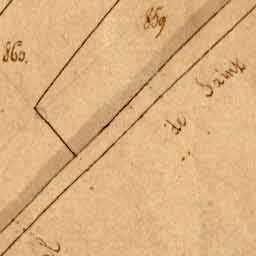 859
860.
de Saint